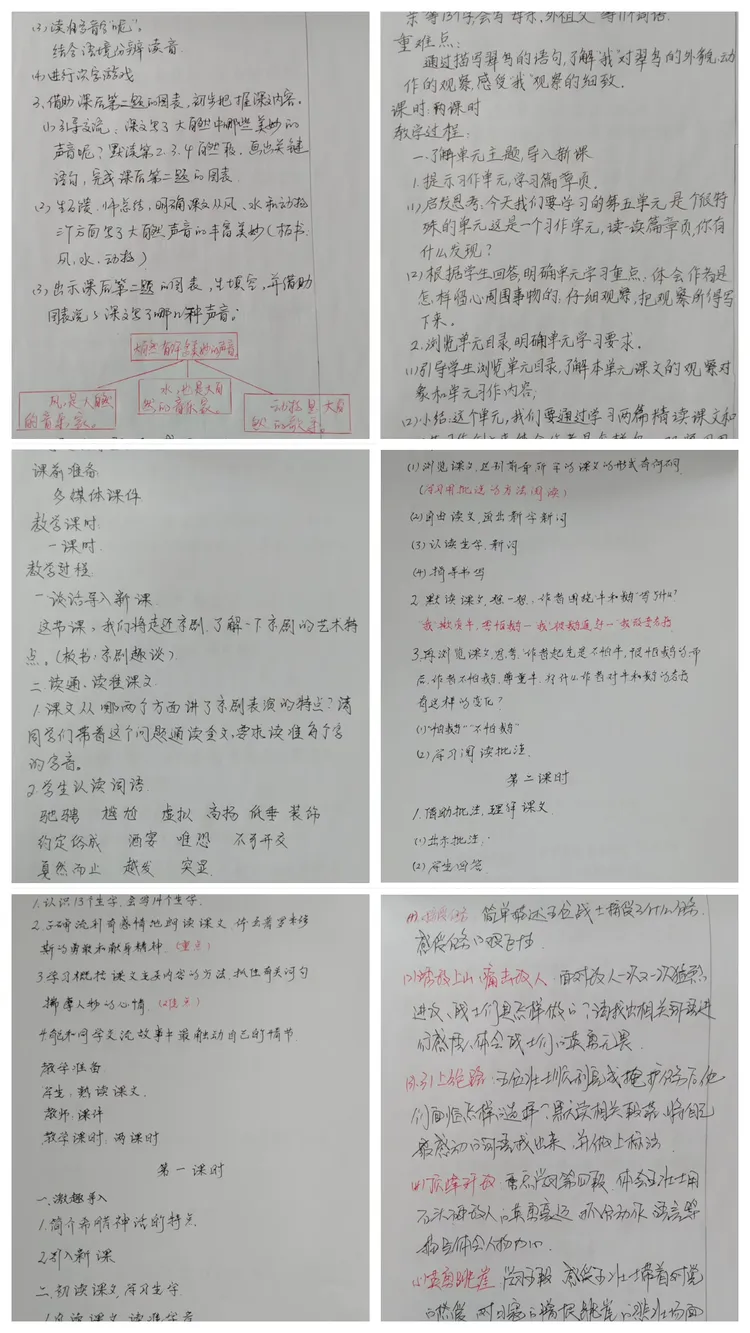 (3)读有字音字"呢"。
结合语境分辨读音
(4)进行识字游戏
3.借助课后第二题的图表,初步把握课文内容。
(1)引导交流:课文写了大自然中哪些美妙的
声音呢?默读第2.3.4自然段,画出关键
语句,完成课后第二题的图表
(2)生名读,师总结,明确课文从风、水和动物
三个方面写了大自然声音的丰富美妙(板书:
风,水,动物)
(3)出示课后第二题的图表,生填空,并借助
图表说说课文写了哪几种声音。
大自然有许多美妙的声音
风,是大自然
的音乐家。
水,也是大自
然的音乐家。
动物是大自
然的歌手。
亲"等13个字,会写"母亲,外祖父"等11个词语.
重难点:
通过描写翠鸟的语句,了解"我"对翠鸟的外貌,动
作的观察,感受"我"观察的细致.
课时:两课时
教学过程:
一.了解单元主题,导入新课
1.提示习作单元,学习篇章页.
(1)启发思考:今天我们要学习的第五单元是个很特
殊的单元.这是一个习作单元,读一读篇章页,你有
什么发现?
(2)根据学生回答,明确单元学习重点:体会作者是
怎样留心周围事物的.仔细观察,把观察所得写
下来.
2.浏览单元目录,明确单元学习要求.
(1)引导学生浏览单元目录,了解本单元课文的观察对
象和单元习作内容;
(2)小结:这个单元,我们要通过学习两篇精读课文和
课前准备
多媒体课件
教学课时:
一课时.
教学过程
一.谈话导入新课.
这节课,我们将走近京剧,了解一下京剧的艺术特
点。(板书:京剧趣谈)
二.读通、读准课文.
1.课文从哪两个方面讲了京剧表演的特点?请
同学们带着这个问题通读全文,要求读准每个字
的字音。
2.学生认读词语.
驰骋 尴尬 虚拟 高扬 低垂 装饰
约定俗成 酒宴 唯恐 不可开交
戛然而止 越发 突显
(1)浏览课文,区别前面所学的课文的形式有何不同.
(学习用批注的方法阅读)
(2)自由读文,画出新字新词
(3)认读生字.新词
(4)指导书写
2.默读课文,想一想:作者围绕牛和鹅写了什么?
3.再浏览课文,思考:作者起先是不怕牛,很怕鹅的,而
后,作者不怕鹅,尊重牛.为什么作者对牛和鹅的态度
有这样的变化?
(1)"怕鹅""不怕鹅"
(2)学习阅读批注.
第二课时
1.借助批注,理解课文.
(1)出示批注:
(2)学生回答.
1.认识13个生字,会写14个生字.
2.正确流利有感情地朗读课文,体会普罗米修
斯的勇敢和献身精神.(重点)
3.学习概括课文主要内容的方法,抓住有关词句
揣摩人物的心情.(难点)
4.能和同学交流故事中最触动自己的情节.
教学准备
学生:熟读课文.
教师:课件
教学课时:两课时
第一课时
一.激趣导入
1.简介希腊神话的特点.
2.引入新课
二.初读课文,学习生字.
1.自读课文,读准字音
(1)接受任务 简单描述五位战士接受了什么任务.
感受任务的艰巨性.
(2)诱敌上山,痛击敌人:面对敌人一次又一次猛烈
进攻,战士们是怎样做的?请找出相关词语进
行感悟,体会战士们的英勇无畏.
(3)引上绝路:五位壮士顺利完成掩护任务后他
们面临怎样的选择?默读相关段落,将自己
最感动的词语找出来,并做上标注.
(4)顶峰歼敌:重点学习第四段,体会五壮士用
石头砸敌人的英勇豪迈,抓住动作语言等
描写体会人物内心.
(5)英勇跳崖: